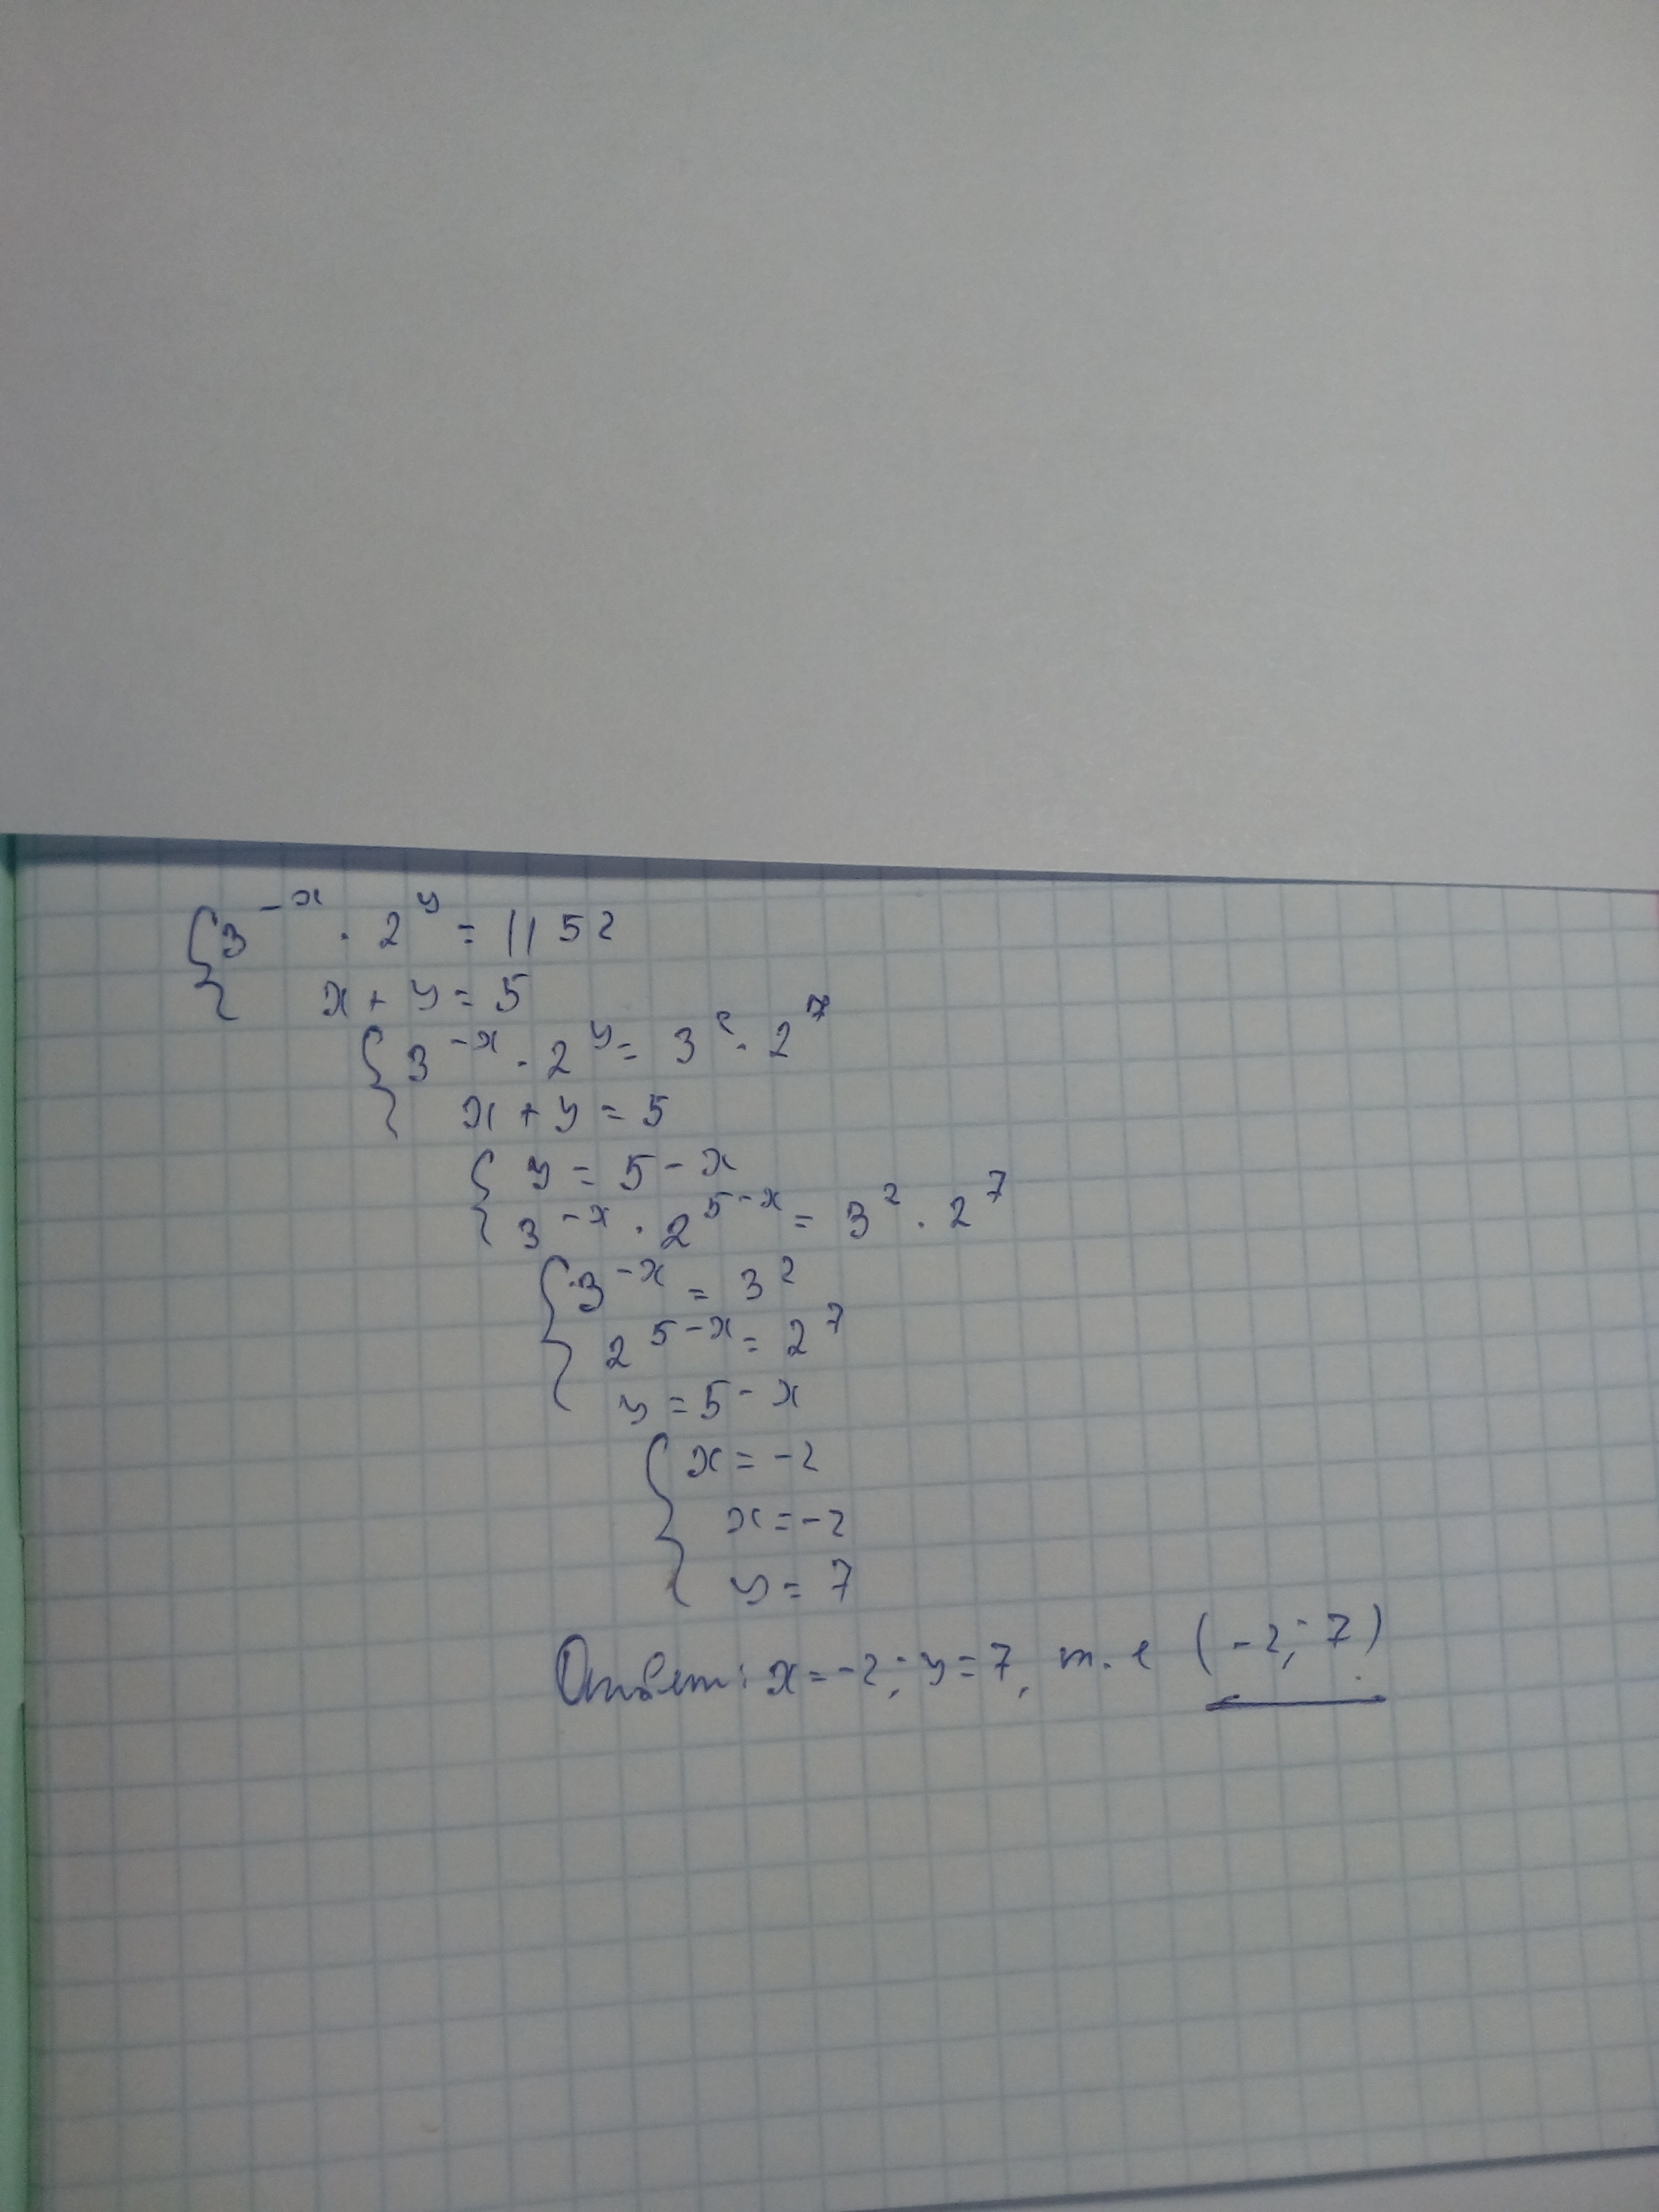 {3^{-x} · 2^y = 1152
x + y = 5
{3^{-x} · 2^y = 3^2 · 2^7
x + y = 5
{y = 5 - x
3^{-x} · 2^{5-x} = 3^2 · 2^7
{3^{-x} = 3^2
2^{5-x} = 2^7
y = 5 - x
{x = -2
x = -2
y = 7
Ответ: x = -2; y = 7, т. е (-2; 7)